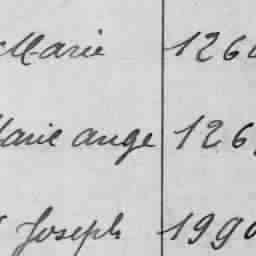 Marie 1260
Marie ange 126
Joseph 1990